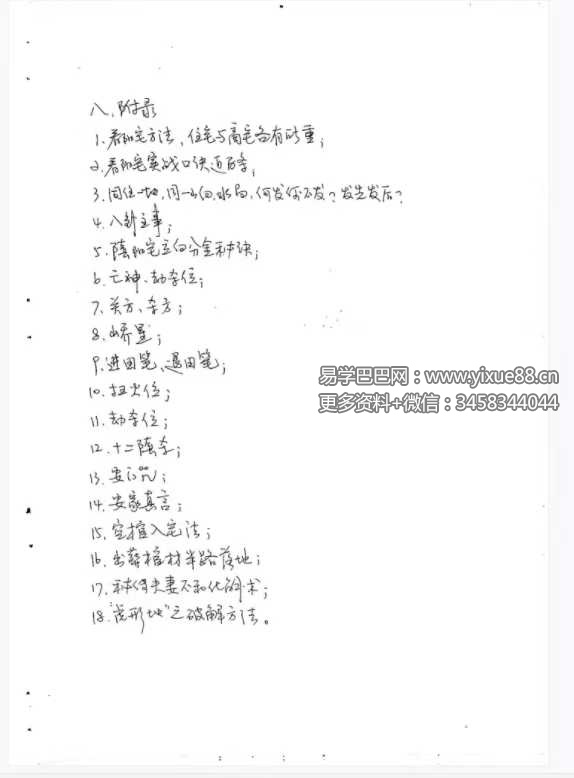 八、附录
1. 看阳宅方法，住宅与商宅各有所重；
2. 看阳宅实战口诀近百条；
3. 同住一地，同一山向，水局，何发何不发？发先发后？
4. 八卦主事；
5. 阴阳宅立向分金秘诀；
6. 亡神、劫杀位；
7. 关方、杀方；
8. 曜星；
9. 进田笔、退田笔；
10. 扫火位；
11. 劫杀位；
12. 十二阴杀；
13. 安门咒；
14. 安家真言；
15. 空棺入宅法；
16. 出葬棺材半路落地；
17. 秘传夫妻不和化的术；
18. "虎形地"之破解方法。
易学巴巴网：www.yixue88.cn
更多资料+微信：3458344044